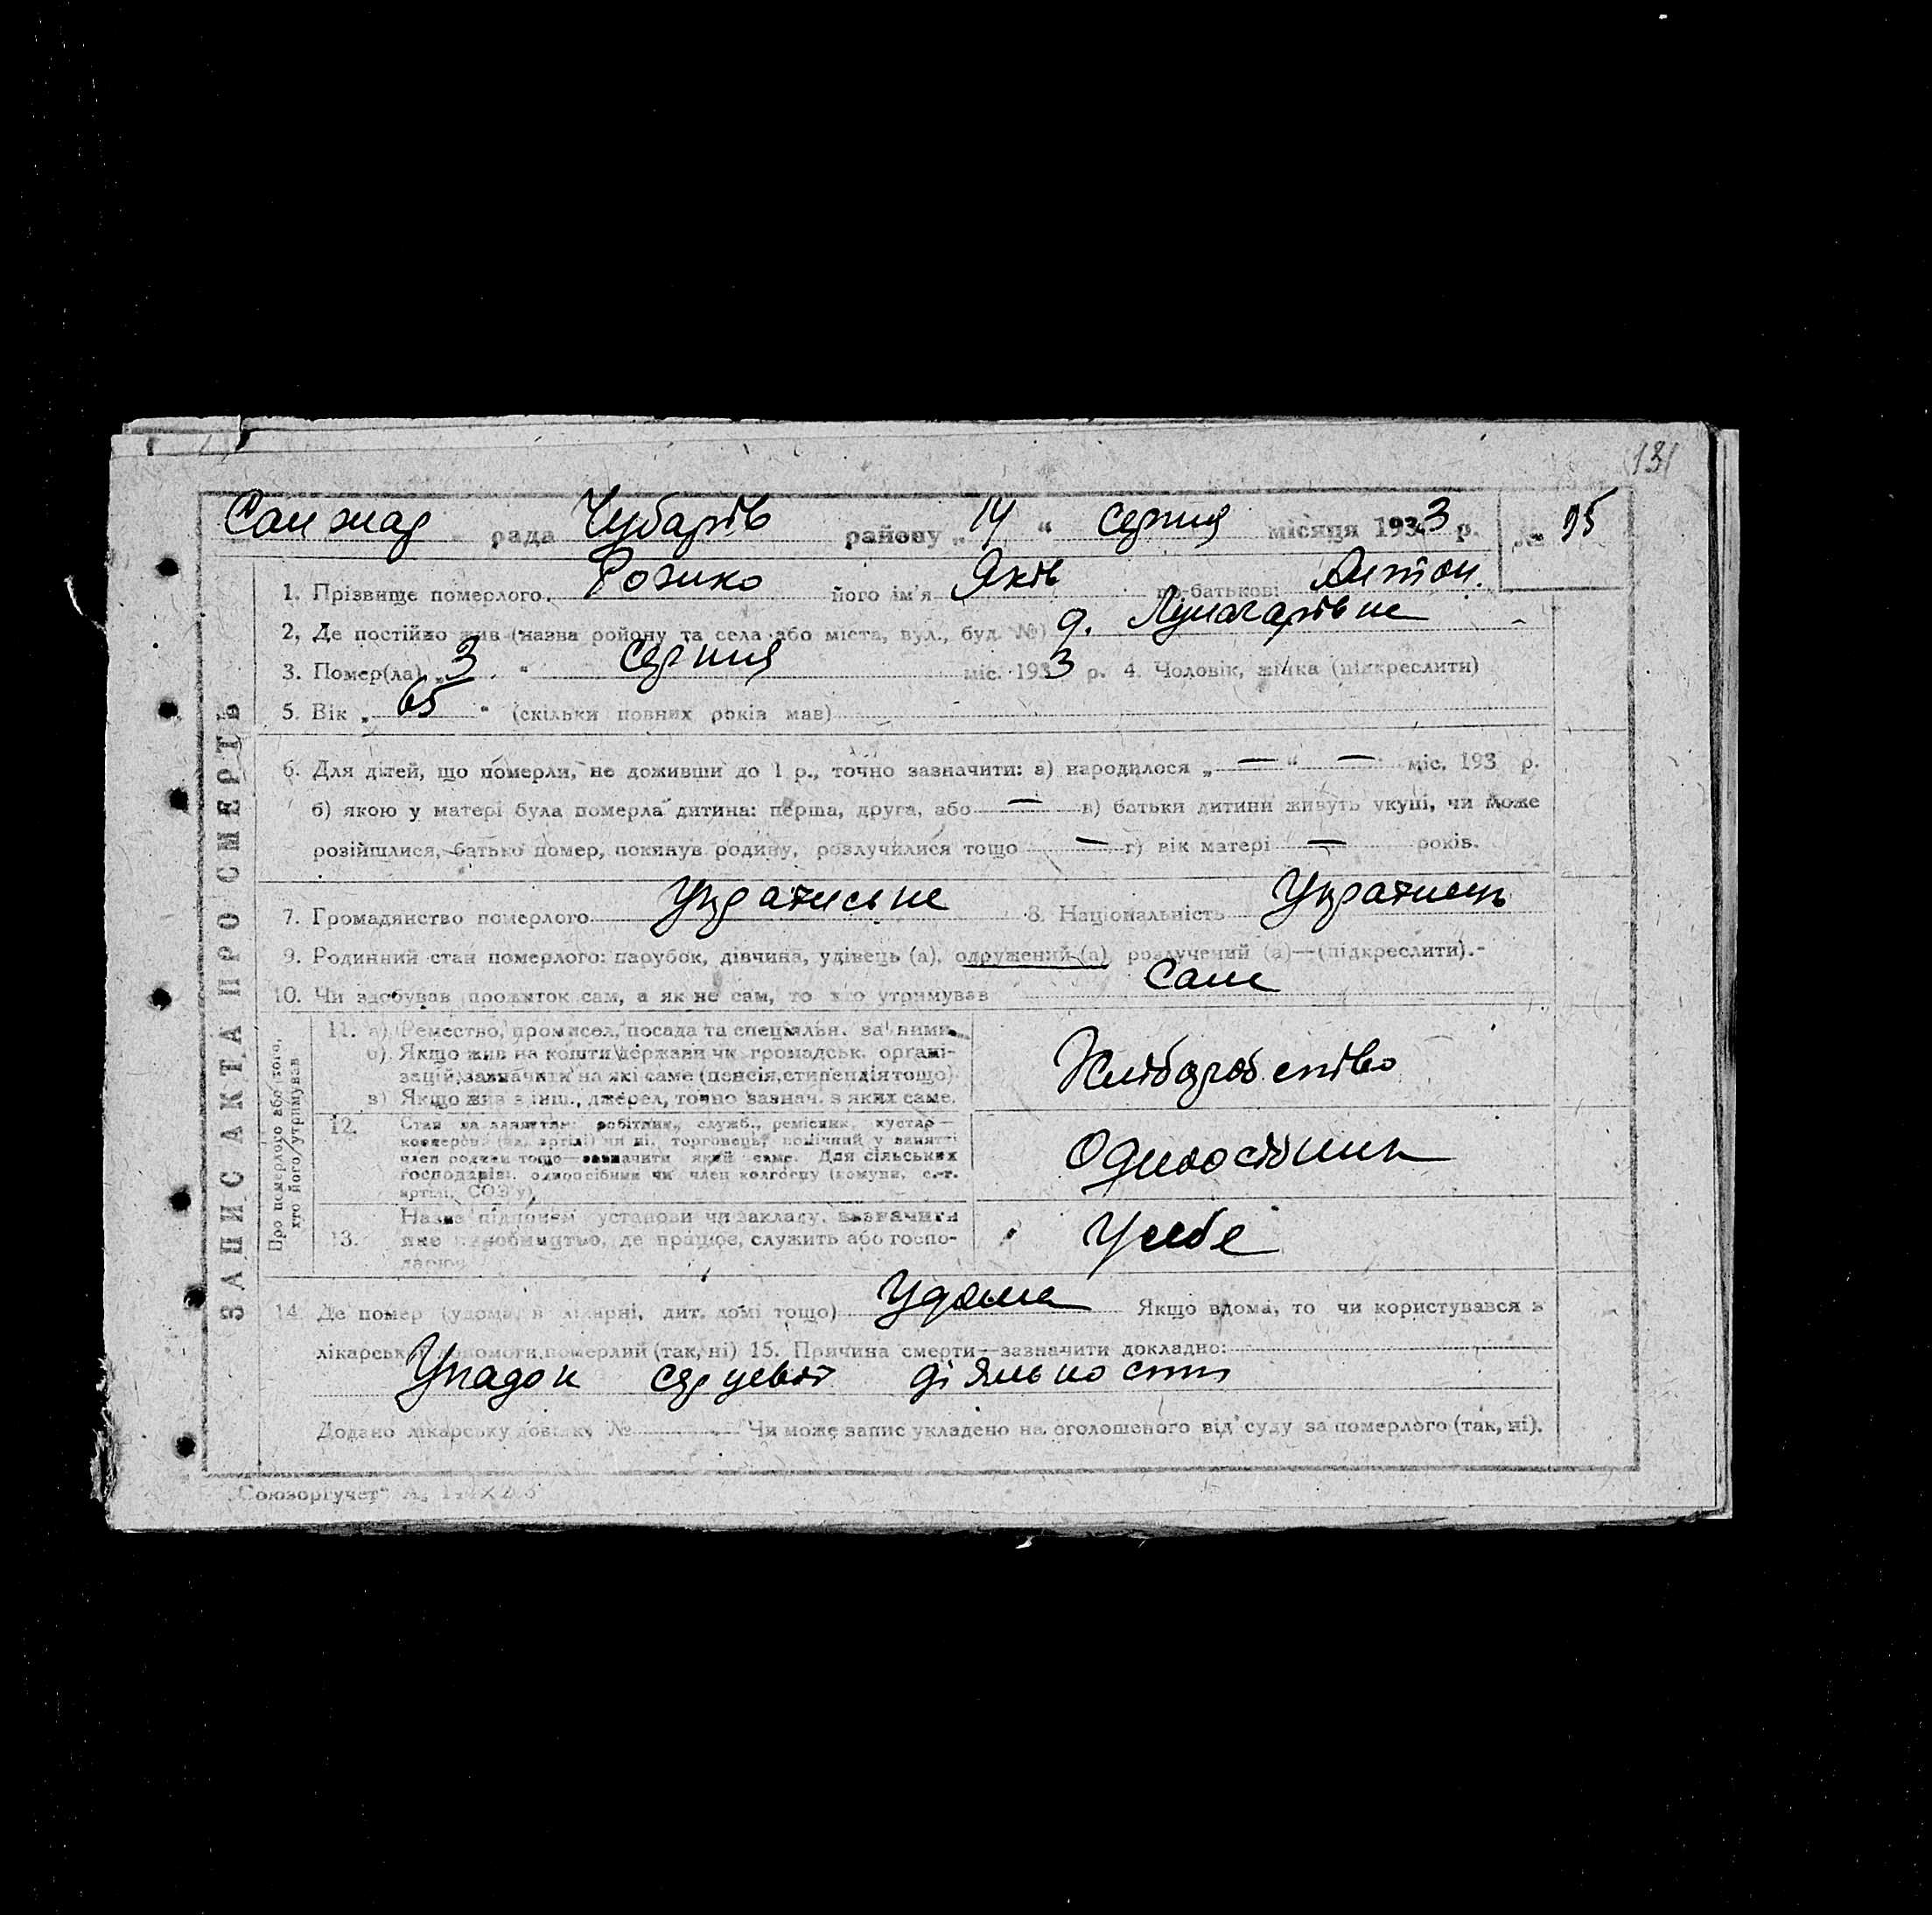 131
Санжар рада Чубарів району „14“ серпня місяця 1933 р. № 95
ЗАПИС АКТА ПРО СМЕРТЬ
1. Прізвище померлого. його ім'я Яків по-батькові Антон.
2, Де постійно жив (назва району та села або міста, вул., буд. №) д. Луначарівне
3. Помер(ла) „3“ серпня міс. 1933 р. 4. Чоловік, жінка (підкреслити)
5. Вік „65“ (скільки повних років мав)
6. Для дітей, що померли, не доживши до 1 р., точно зазначити: а) народилося „—“ — міс. 193 р.
б) якою у матері була померла дитина: перша, друга, або — в) батьки дитини живуть укупі, чи може
розійшлися, батько помер, покинув родину, розлучилися тощо — г) вік матері — років.
7. Громадянство померлого Українське 8. Національність Українець
9. Родинний стан померлого: парубок, дівчина, удівець (а), одружений (а) розлучений (а)—(підкреслити).-
10. Чи здобував прожиток сам, а як не сам, то хто утримував Сам
Про померлого або того,
хто його утримував
11. а) Ремество, промисел, посада та спеціяльн. за ними
б) Якщо жив на кошти держави чи громадськ. органі-
зацій, зазначити на які саме (пенсія, стипендія тощо)
в) Якщо жив з інш., джерел, точно зазнач. з яких саме.
Хліборобство
12. Стан за заняттям: робітник, служб., ремісник, кустар—
член родини тощо—зазначити який саме. Для сільських
господарів: одноосібник чи член колгоспу (комуни, с.-г.
артіл., СОЗ'у)
Одноосібник
13. Назва підприєм. установи чи закладу, зазначити
яке виробництво, де працює, служить або госпо-
дарює
У себе
14. Де помер (удома, в лікарні, дит. домі тощо) Удома Якщо вдома, то чи користувався з
лікарської допомоги померлий (так, ні) 15. Причина смерти—зазначити докладно:
Упадок серцевої діяльности
Додано лікарську довідку № Чи може запис укладено на оголошеного від суду за померлого (так, ні).
„Союзоргучет“